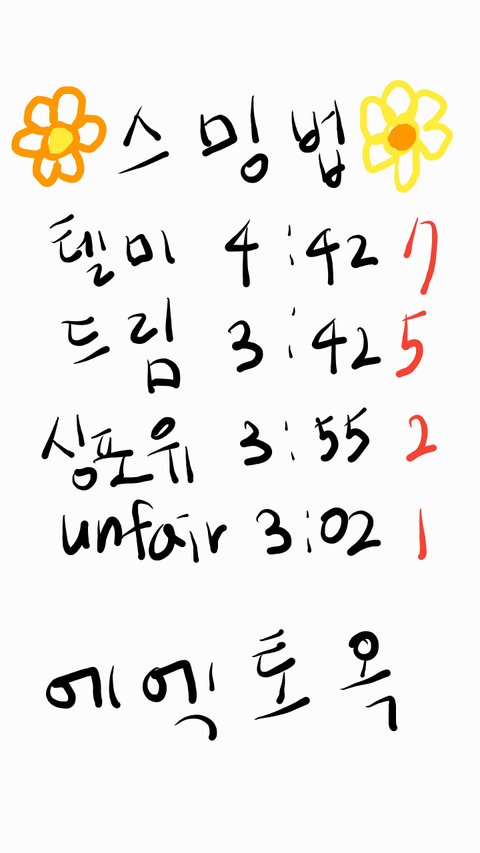 스밍법
텔미 4:42 7
드림 3:42 5
싱포유 3:55 2
unfair 3:02 1
에엑토옥